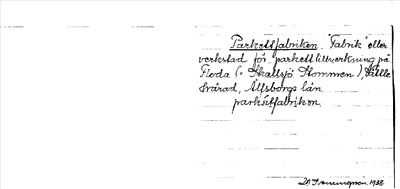 Parkettfabriken. "Fabrik" eller
verkstad för parkettillverkning på
Floda (= Skallsjö Stommen), Lilla
Svärad, Älfsborgs län
parkätfabriken.
1938